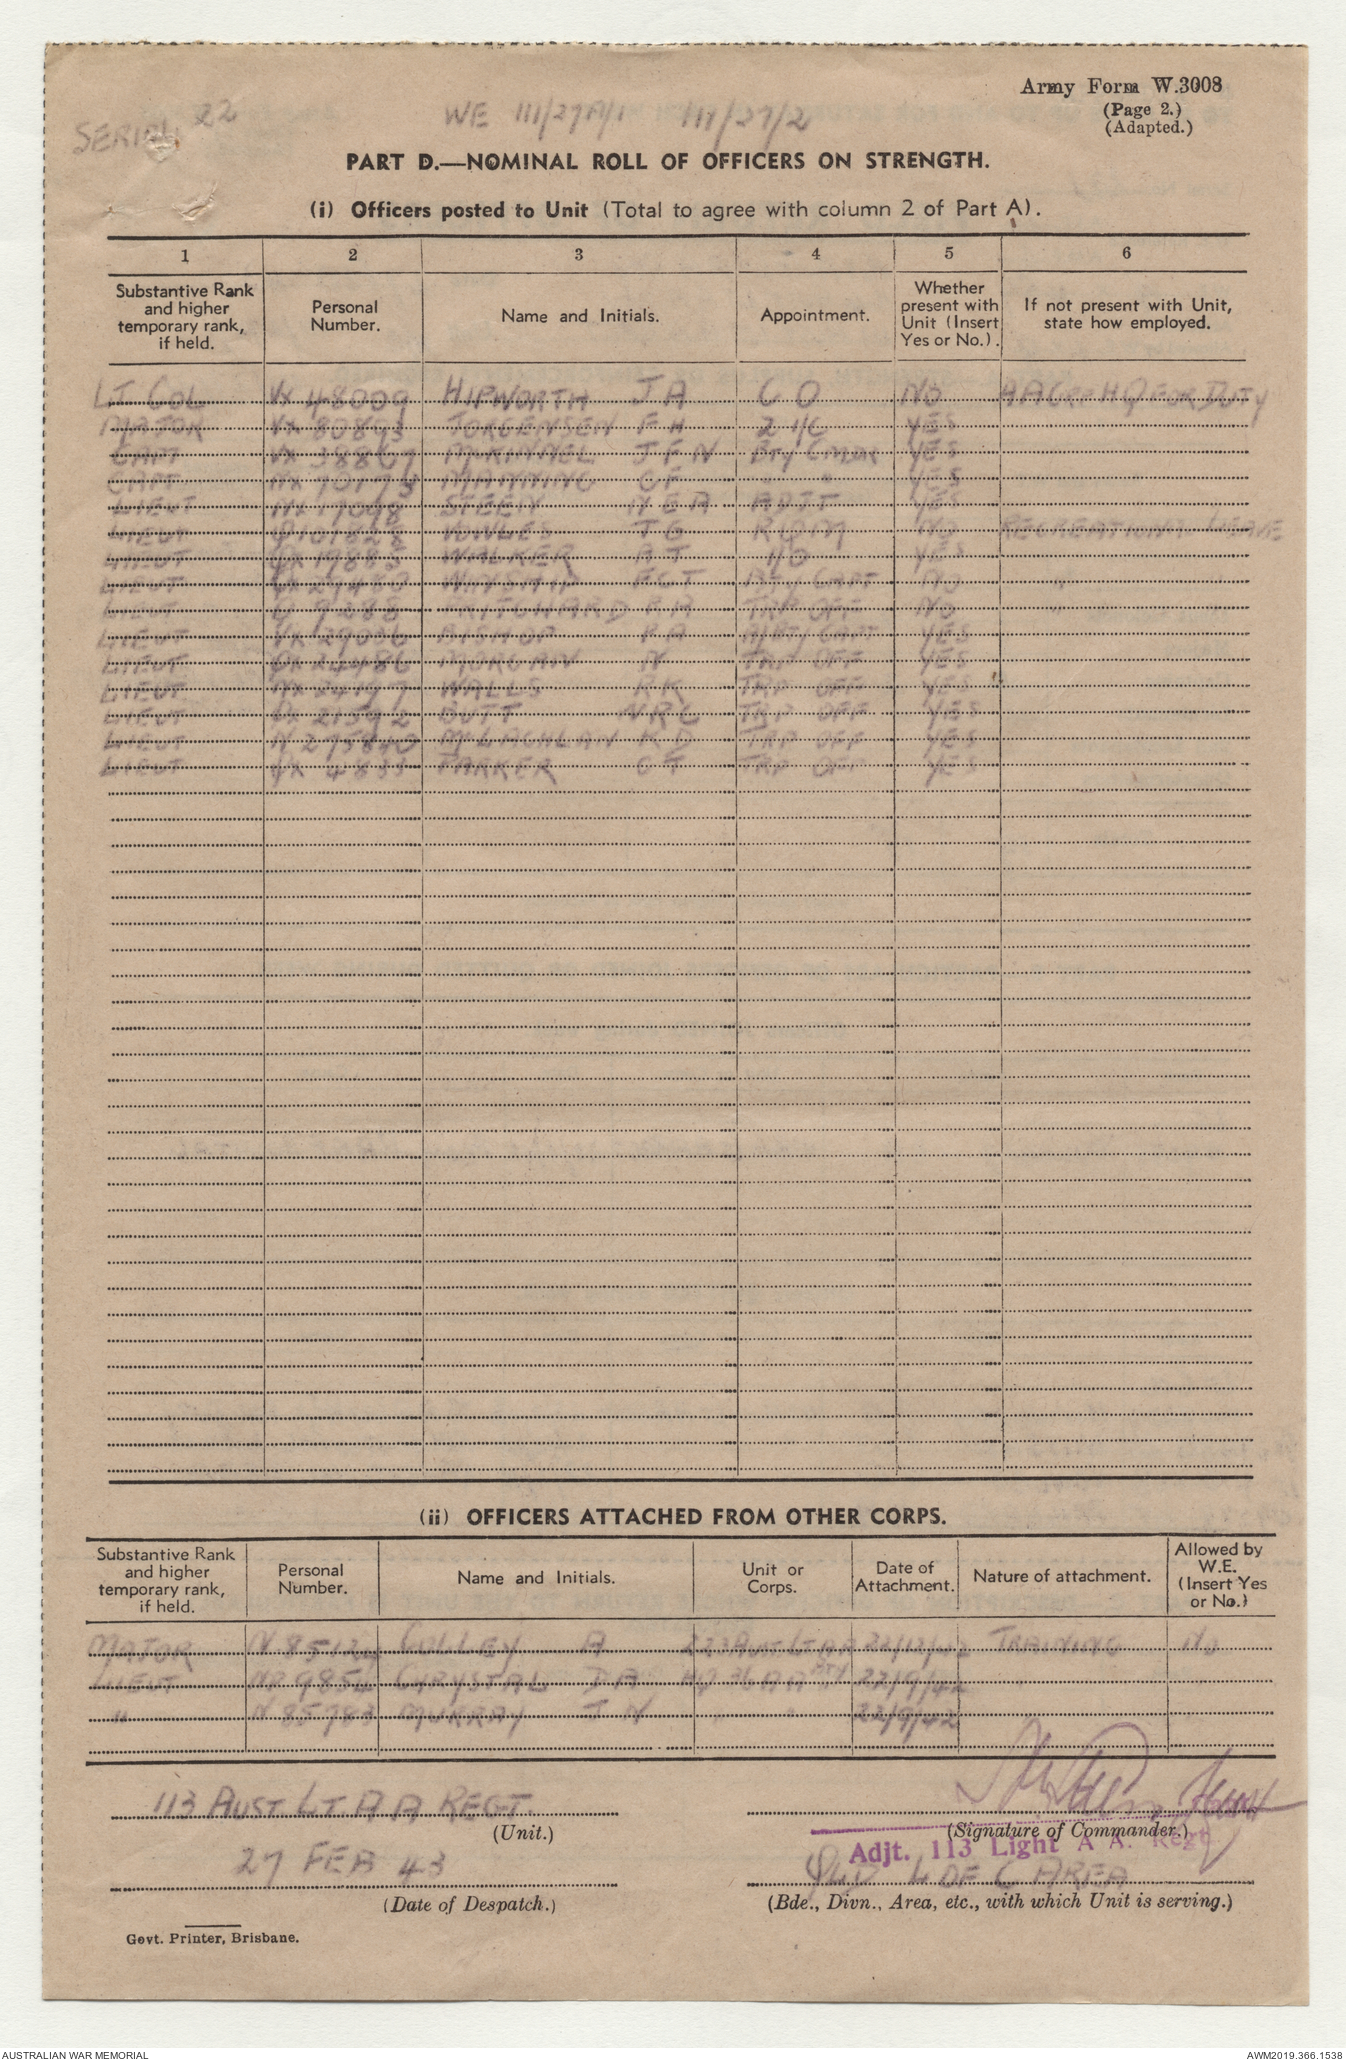 Army Form W.3008
(Page 2.)
(Adapted.)
SERIAL 22
WE III/27A/1 III/27/2
PART D.—NOMINAL ROLL OF OFFICERS ON STRENGTH.
(i) Officers posted to Unit (Total to agree with column 2 of Part A).
1 2 3 4 5 6
Substantive Rank and higher temporary rank, if held. Personal Number. Name and Initials. Appointment. Whether present with Unit (Insert Yes or No.). If not present with Unit, state how employed.
LT COL VX 48009 HIPWORTH J A C O NO AA GRP HQ FOR DUTY
MAJOR VX 80893 JORGENSEN F H 2 I/C YES
CAPT VX 38867 McKINNEL J F N Bty CMDR YES
CAPT NX 70173 MANNING C F " " YES
LIEUT NX 17048 STEEN N E A ADJT YES
LIEUT Q 101828 VOWLES J G R QM NO RECREATION LEAVE
LIEUT QX 19885 WALKER A J I/O YES
LIEUT 29480 F G T Bty CAPT NO " "
LIEUT Q 9288 PRITCHARD R A TRP OFF NO " "
LIEUT VX 29036 BISHOP R A Bty CAPT YES
LIEUT QX 24486 MORGAN N TRP OFF YES
LIEUT NX 34197 WALLS R K TRP OFF YES
LIEUT 21592 BUTT N R C TRP OFF YES
LIEUT N 275840 McLACHLAN K D TRP OFF YES
LIEUT 4833 PARKER C T TRP OFF YES
(ii) OFFICERS ATTACHED FROM OTHER CORPS.
Substantive Rank and higher temporary rank, if held. Personal Number. Name and Initials. Unit or Corps. Date of Attachment. Nature of attachment. Allowed by W.E. (Insert Yes or No.)
MAJOR COLLEY A 223 AUST LT AA 22/12/42 TRAINING NO
LIEUT CHRYSTAL D A HQ 36 AA BTY 22/9/42 "
" N 85783 MURRAY J N " " 22/9/42
113 AUST. LT. A A REGT.
(Unit.)
(Signature of Commander.)
Adjt. 113 Light A A. Regt
27 FEB 43
QLD L OF C AREA
(Date of Despatch.)
(Bde., Divn., Area, etc., with which Unit is serving.)
Govt. Printer, Brisbane.
AUSTRALIAN WAR MEMORIAL
AWM2019.366.1538